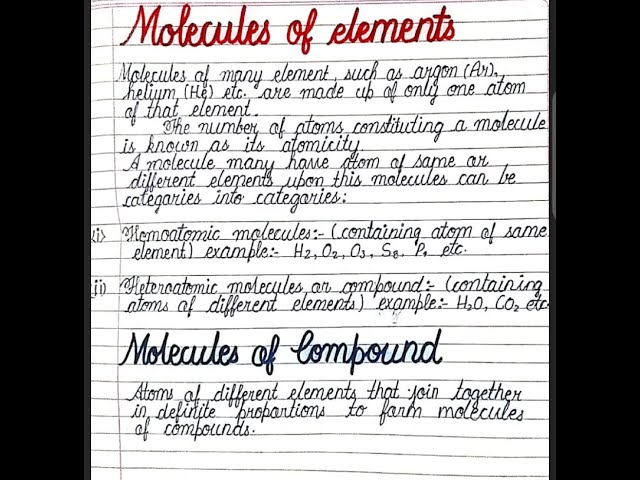 Molecules of elements
Molecules of many element, such as argon (Ar),
helium, (He) etc. are made up of only one atom
of that element.
The number of atoms constituting a molecule
is known as its atomicity.
A molecule many have atom of same or
different elements upon this molecules can be
categories into categories:
(i) Homoatomic molecules:- (containing atom of same
element) example:- H₂, O₂, O₃, S₈, P₄ etc.
(ii) Heteroatomic molecules or compound:- (containing
atoms of different elements) example:- H₂O, CO₂ etc.
Molecules of Compound
Atoms of different elements that join together
in definite proportions to form molecules
of compounds.